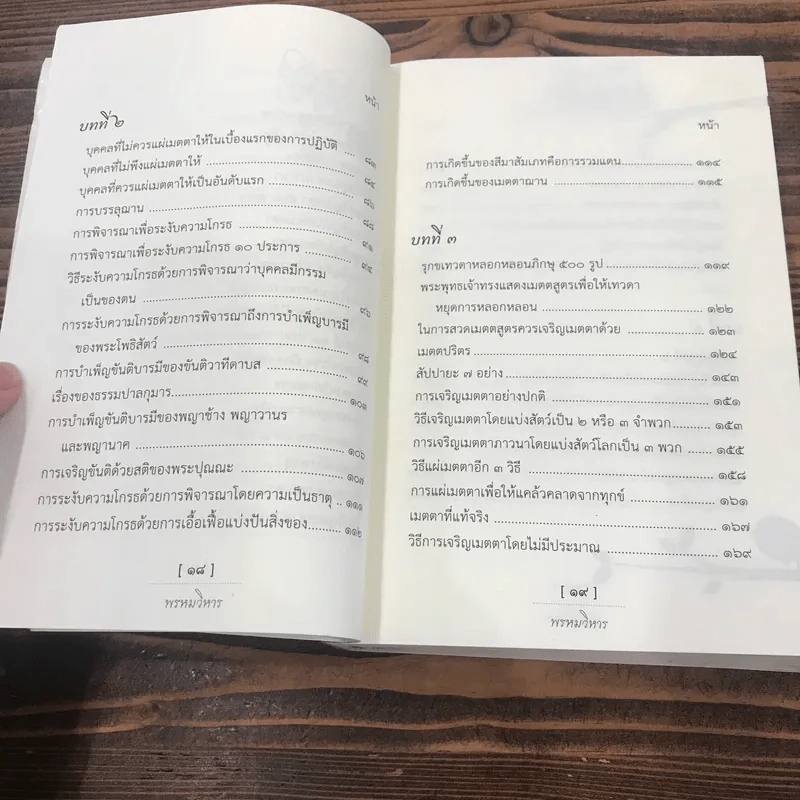 หน้า
บทที่ ๒
บุคคลที่ไม่ควรแผ่เมตตาให้ในเบื้องแรกของการปฏิบัติ .... ๘๓
บุคคลที่ไม่พึงแผ่เมตตาให้ .... ๘๔
บุคคลที่ควรแผ่เมตตาให้เป็นอันดับแรก .... ๘๖
การบรรลุฌาน .... ๘๘
การพิจารณาเพื่อระงับความโกรธ .... ๙๑
การพิจารณาเพื่อระงับความโกรธ ๑๐ ประการ .... ๙๔
วิธีระงับความโกรธด้วยการพิจารณาว่าบุคคลมีกรรม
เป็นของตน .... ๙๖
การระงับความโกรธด้วยการพิจารณาถึงการบำเพ็ญบารมี
ของพระโพธิสัตว์ .... ๙๘
การบำเพ็ญขันติบารมีของขันติวาทีดาบส .... ๙๙
เรื่องของธรรมปาลกุมาร .... ๑๐๓
การบำเพ็ญขันติบารมีของพญาช้าง พญาวานร
และพญานาค .... ๑๐๖
การเจริญขันติด้วยสติของพระปุณณะ .... ๑๐๗
การระงับความโกรธด้วยการพิจารณาโดยความเป็นธาตุ .. ๑๑๑
การระงับความโกรธด้วยการเอื้อเฟื้อแบ่งปันสิ่งของ.... ๑๑๒
[ ๑๘ ]
พรหมวิหาร
หน้า
การเกิดขึ้นของสีมาสัมเภทคือการรวมแดน.... ๑๑๔
การเกิดขึ้นของเมตตาฌาน .... ๑๑๕
บทที่ ๓
รุกขเทวดาหลอกหลอนภิกษุ ๕๐๐ รูป .... ๑๑๙
พระพุทธเจ้าทรงแสดงเมตตสูตรเพื่อให้เทวดา
หยุดการหลอกหลอน .... ๑๒๒
ในการสวดเมตตสูตรควรเจริญเมตตาด้วย .... ๑๒๓
เมตตปริตร .... ๑๒๔
สัปปายะ ๗ อย่าง .... ๑๔๓
การเจริญเมตตาอย่างปกติ .... ๑๕๑
วิธีเจริญเมตตาโดยแบ่งสัตว์เป็น ๒ หรือ ๓ จำพวก.... ๑๕๓
การเจริญเมตตาภาวนาโดยแบ่งสัตว์โลกเป็น ๓ พวก .... ๑๕๕
วิธีแผ่เมตตาอีก ๓ วิธี .... ๑๕๘
การแผ่เมตตาเพื่อให้แคล้วคลาดจากทุกข์ .... ๑๖๑
เมตตาที่แท้จริง .... ๑๖๗
วิธีการเจริญเมตตาโดยไม่มีประมาณ .... ๑๖๙
[ ๑๙ ]
พรหมวิหาร